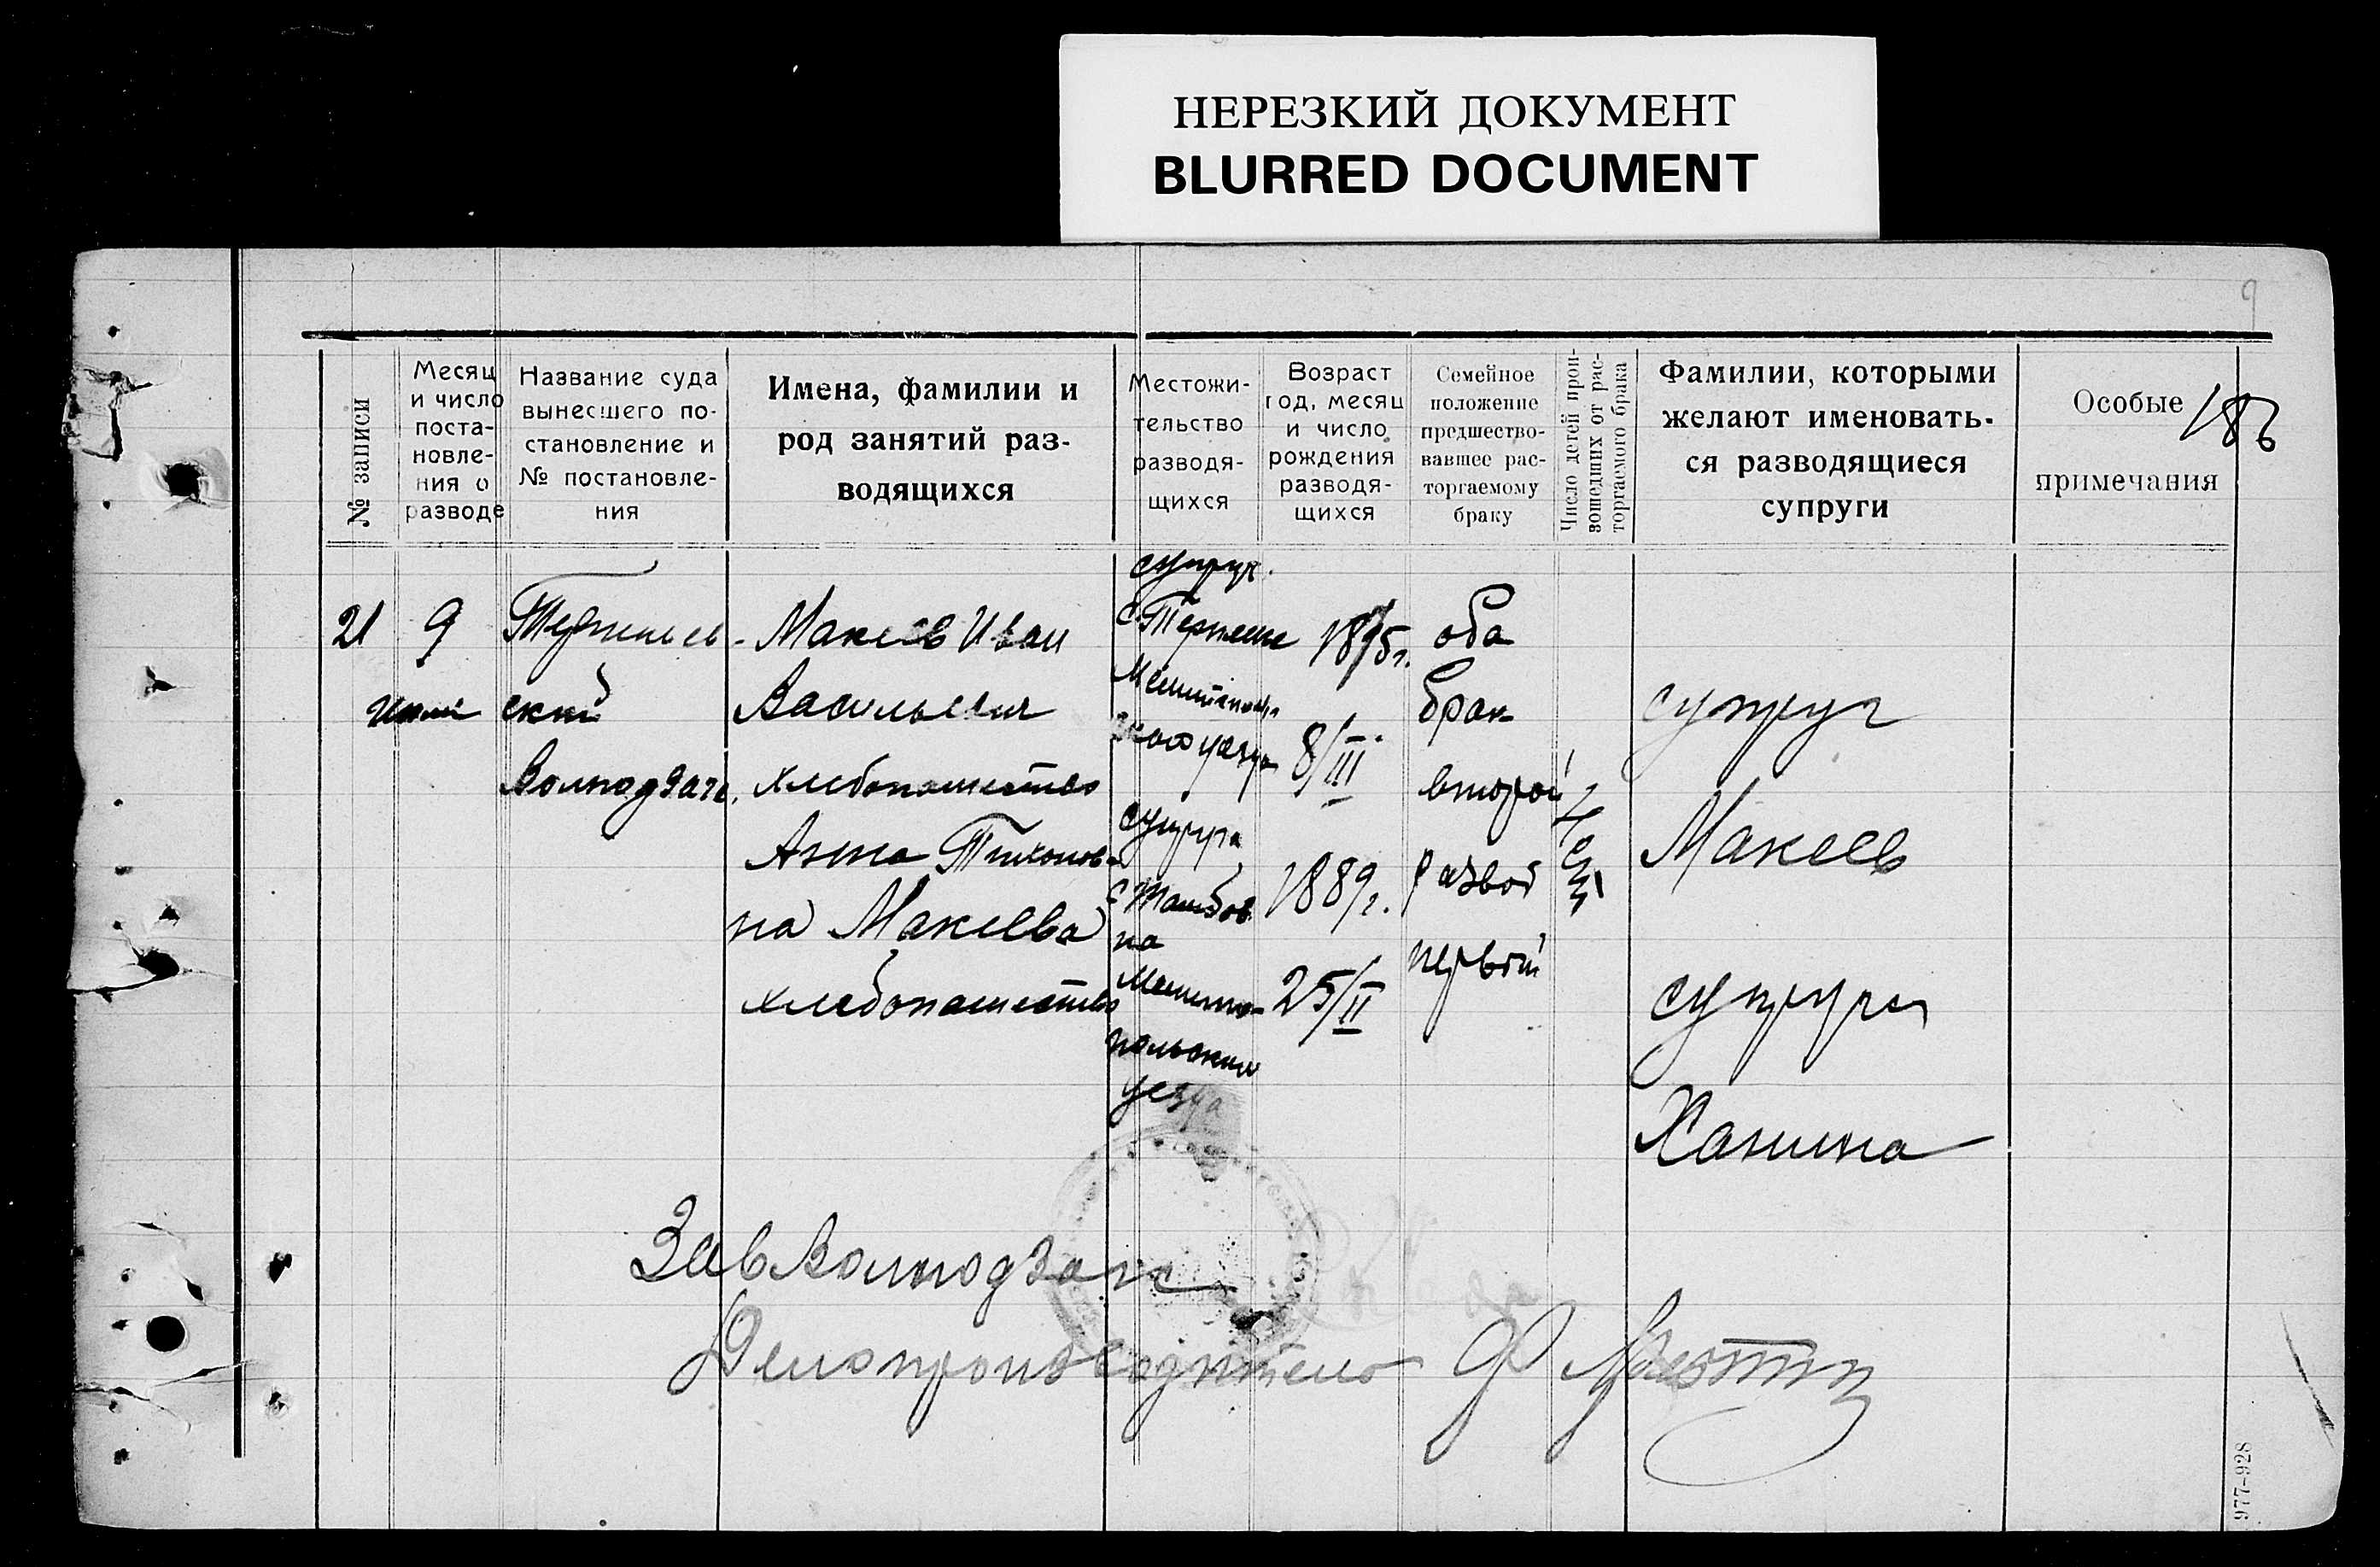 НЕРЕЗКИЙ ДОКУМЕНТ
BLURRED DOCUMENT
9
№ записи
Месяц
и число
поста-
новле-
ния о
разводе
Название суда
вынесшего по-
становление и
№ постановле-
ния
Имена, фамилии и
род занятий раз-
водящихся
Местожи-
тельство
разводя-
щихся
Возраст
год, месяц
и число
рождения
разводя-
щихся
Семейное
положение
предшество-
вавшее рас-
торгаемому
браку
Число детей прои-
зошедших от рас-
торгаемого брака
Фамилии, которыми
желают именовать-
ся разводящиеся
супруги
Особые
примечания
21
9
ский
Волподзагс.
Макеев Иван
Васильевич
хлебопашество
Анна Тихонов-
на Макеева
хлебопашество
супруг.
с.
уезда
супруга
с Тамбов
на
Мелито-
польский
уезда
1895г.
8/III
1889г.
25/II
оба
брак
второй
развод
первый
супруг
Макеев
супруга
Ханина
Зав Волподзагс
Делопроизводитель
977-928